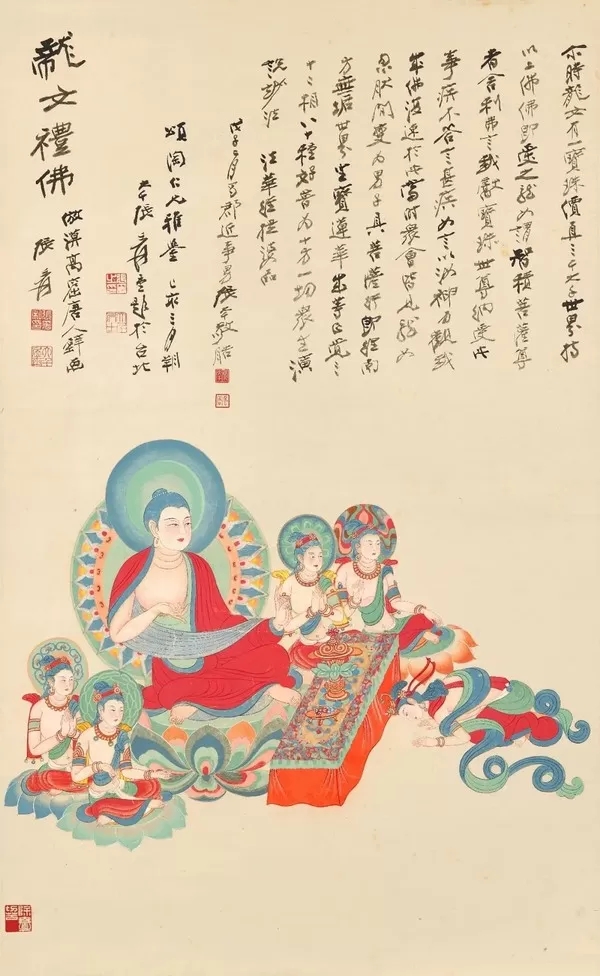 尔時龍女有一寶珠價直三千大千世界持
以上佛佛即受之龍女謂智積菩薩尊
者舍利弗言我獻寶珠世尊納受此
事疾不答言甚疾女言以汝神力觀我
成佛復速於此當時衆會皆見龍女
忽然間變為男子具菩薩行即往南
方無垢世界坐寶蓮華成等正覺三
十二相八十種好普為十方一切衆生演
說妙法 法華經提婆品
戊子二月蜀郡近事男張大千敬
頌陶仁兄雅鑒 三月朔
大千張爰重題於台北
龍女禮佛
倣漠高窟唐人鮮画
張爰